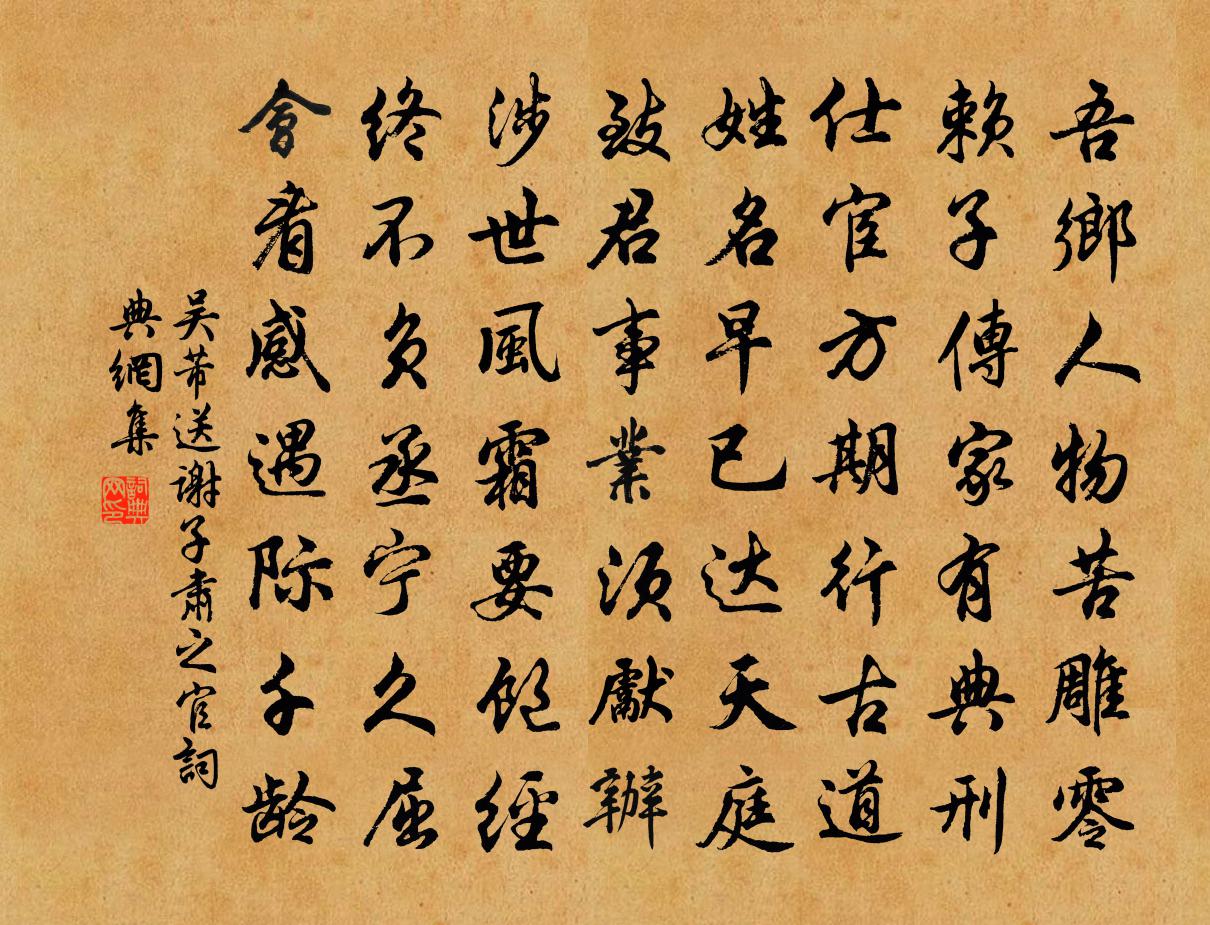 吾鄉人物苦雕零
賴子傳家有典刑
仕宦方期行古道
姓名早已达天庭
致君事業須獻辦
涉世風霜要飽經
終不负丞宁久屈
會看感遇际千龄
吴芾送谢子肅之官詞
典網集
詞典网印